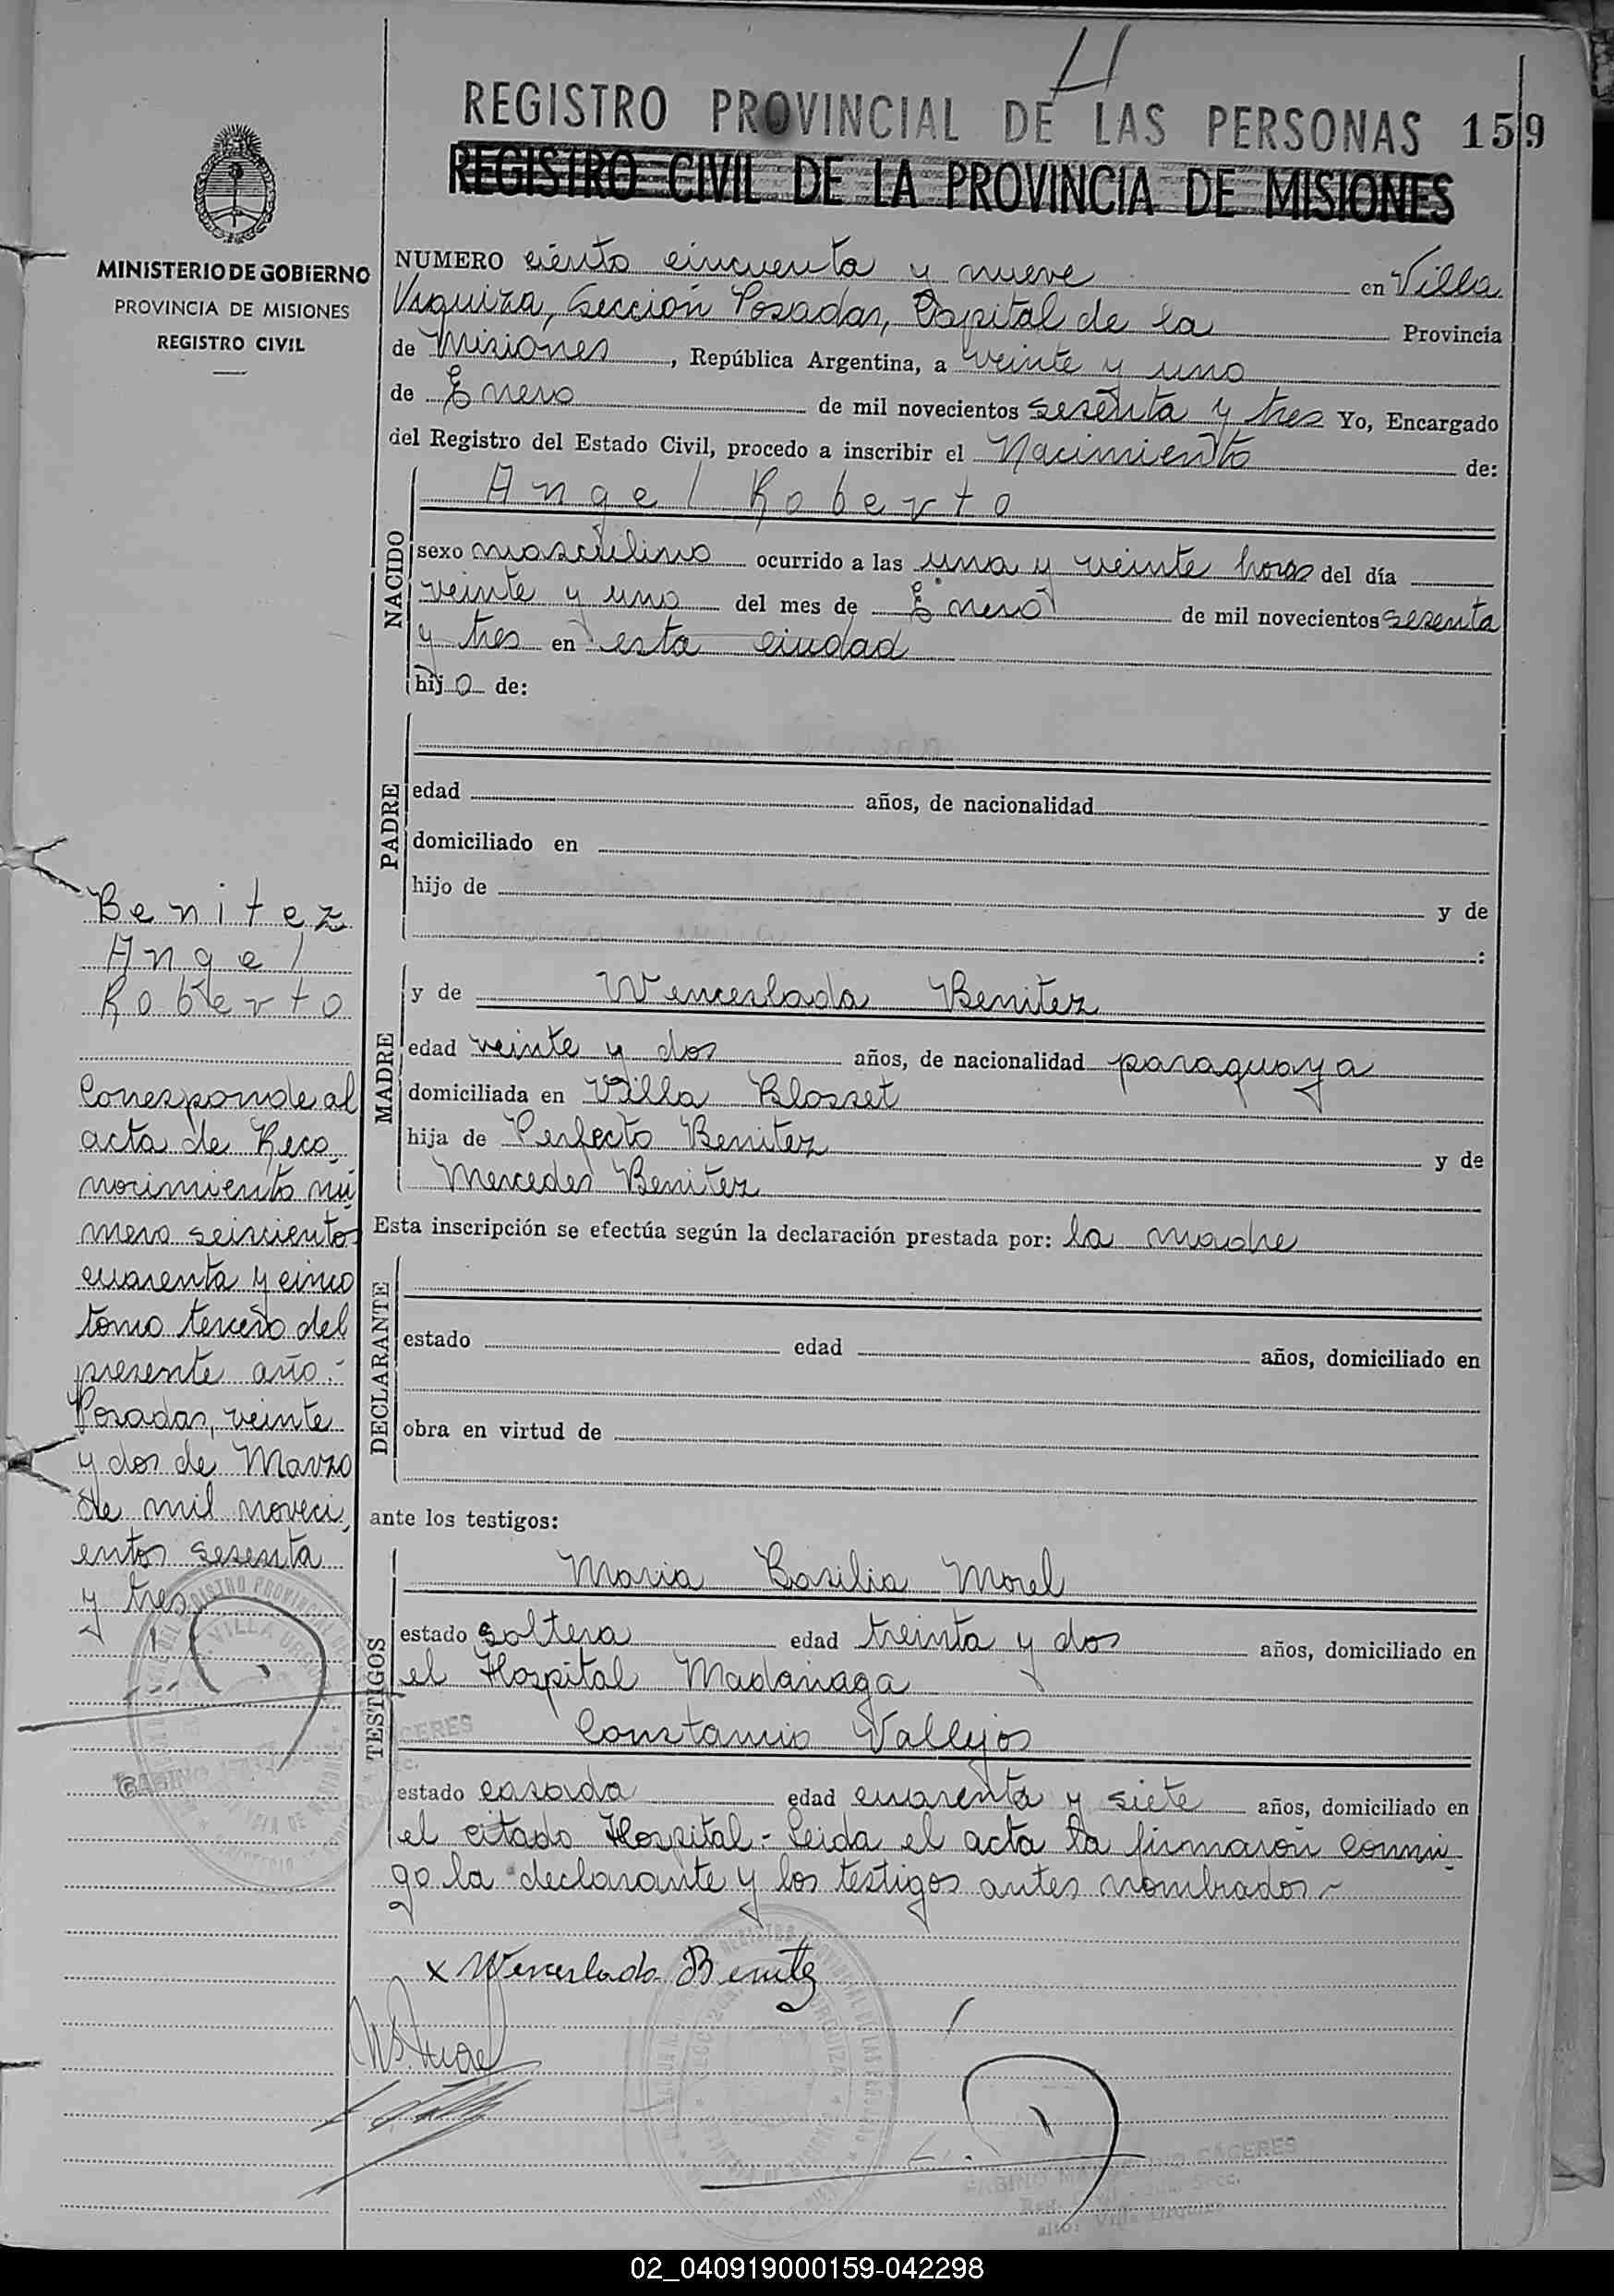 H
REGISTRO PROVINCIAL DE LAS PERSONAS 159
REGISTRO CIVIL DE LA PROVINCIA DE MISIONES
MINISTERIO DE GOBIERNO
PROVINCIA DE MISIONES
REGISTRO CIVIL
NUMERO ciento cincuenta y nueve en Villa
Urquiza, Sección Posadas, Capital de la Provincia
de Misiones, República Argentina, a veinte y uno
de Enero de mil novecientos sesenta y tres Yo, Encargado
del Registro del Estado Civil, procedo a inscribir el Nacimiento de:
NACIDO
Angel Roberto
sexo masculino ocurrido a las una y veinte horas del día
veinte y uno del mes de Enero de mil novecientos sesenta
y tres en esta ciudad
hijo de:
PADRE
edad años, de nacionalidad
domiciliado en
hijo de y de
:
MADRE
y de Wenceslada Benitez
edad veinte y dos años, de nacionalidad paraguaya
domiciliada en Villa Blosset
hija de Perfecto Benitez y de
Mercedes Benitez
Esta inscripción se efectúa según la declaración prestada por: la madre
DECLARANTE
estado edad años, domiciliado en
obra en virtud de
ante los testigos:
TESTIGOS
Maria Basilia Morel
estado soltera edad treinta y dos años, domiciliado en
el Hospital Madariaga
Constancio Vallejos
estado casada edad cuarenta y siete años, domiciliado en
el citado Hospital.- Leida el acta la firmaron conmi-
go la declarante y los testigos antes nombrados.-
x Wenceslada Benitez
Benitez
Angel
Roberto
Corresponde al
acta de Reco-
nocimiento nú-
mero seiscientos
cuarenta y cinco
tomo tercero del
presente año.-
Posadas, veinte
y dos de Marzo
de mil noveci-
entos sesenta
y tres
GABINO CACERES
02_040919000159-042298